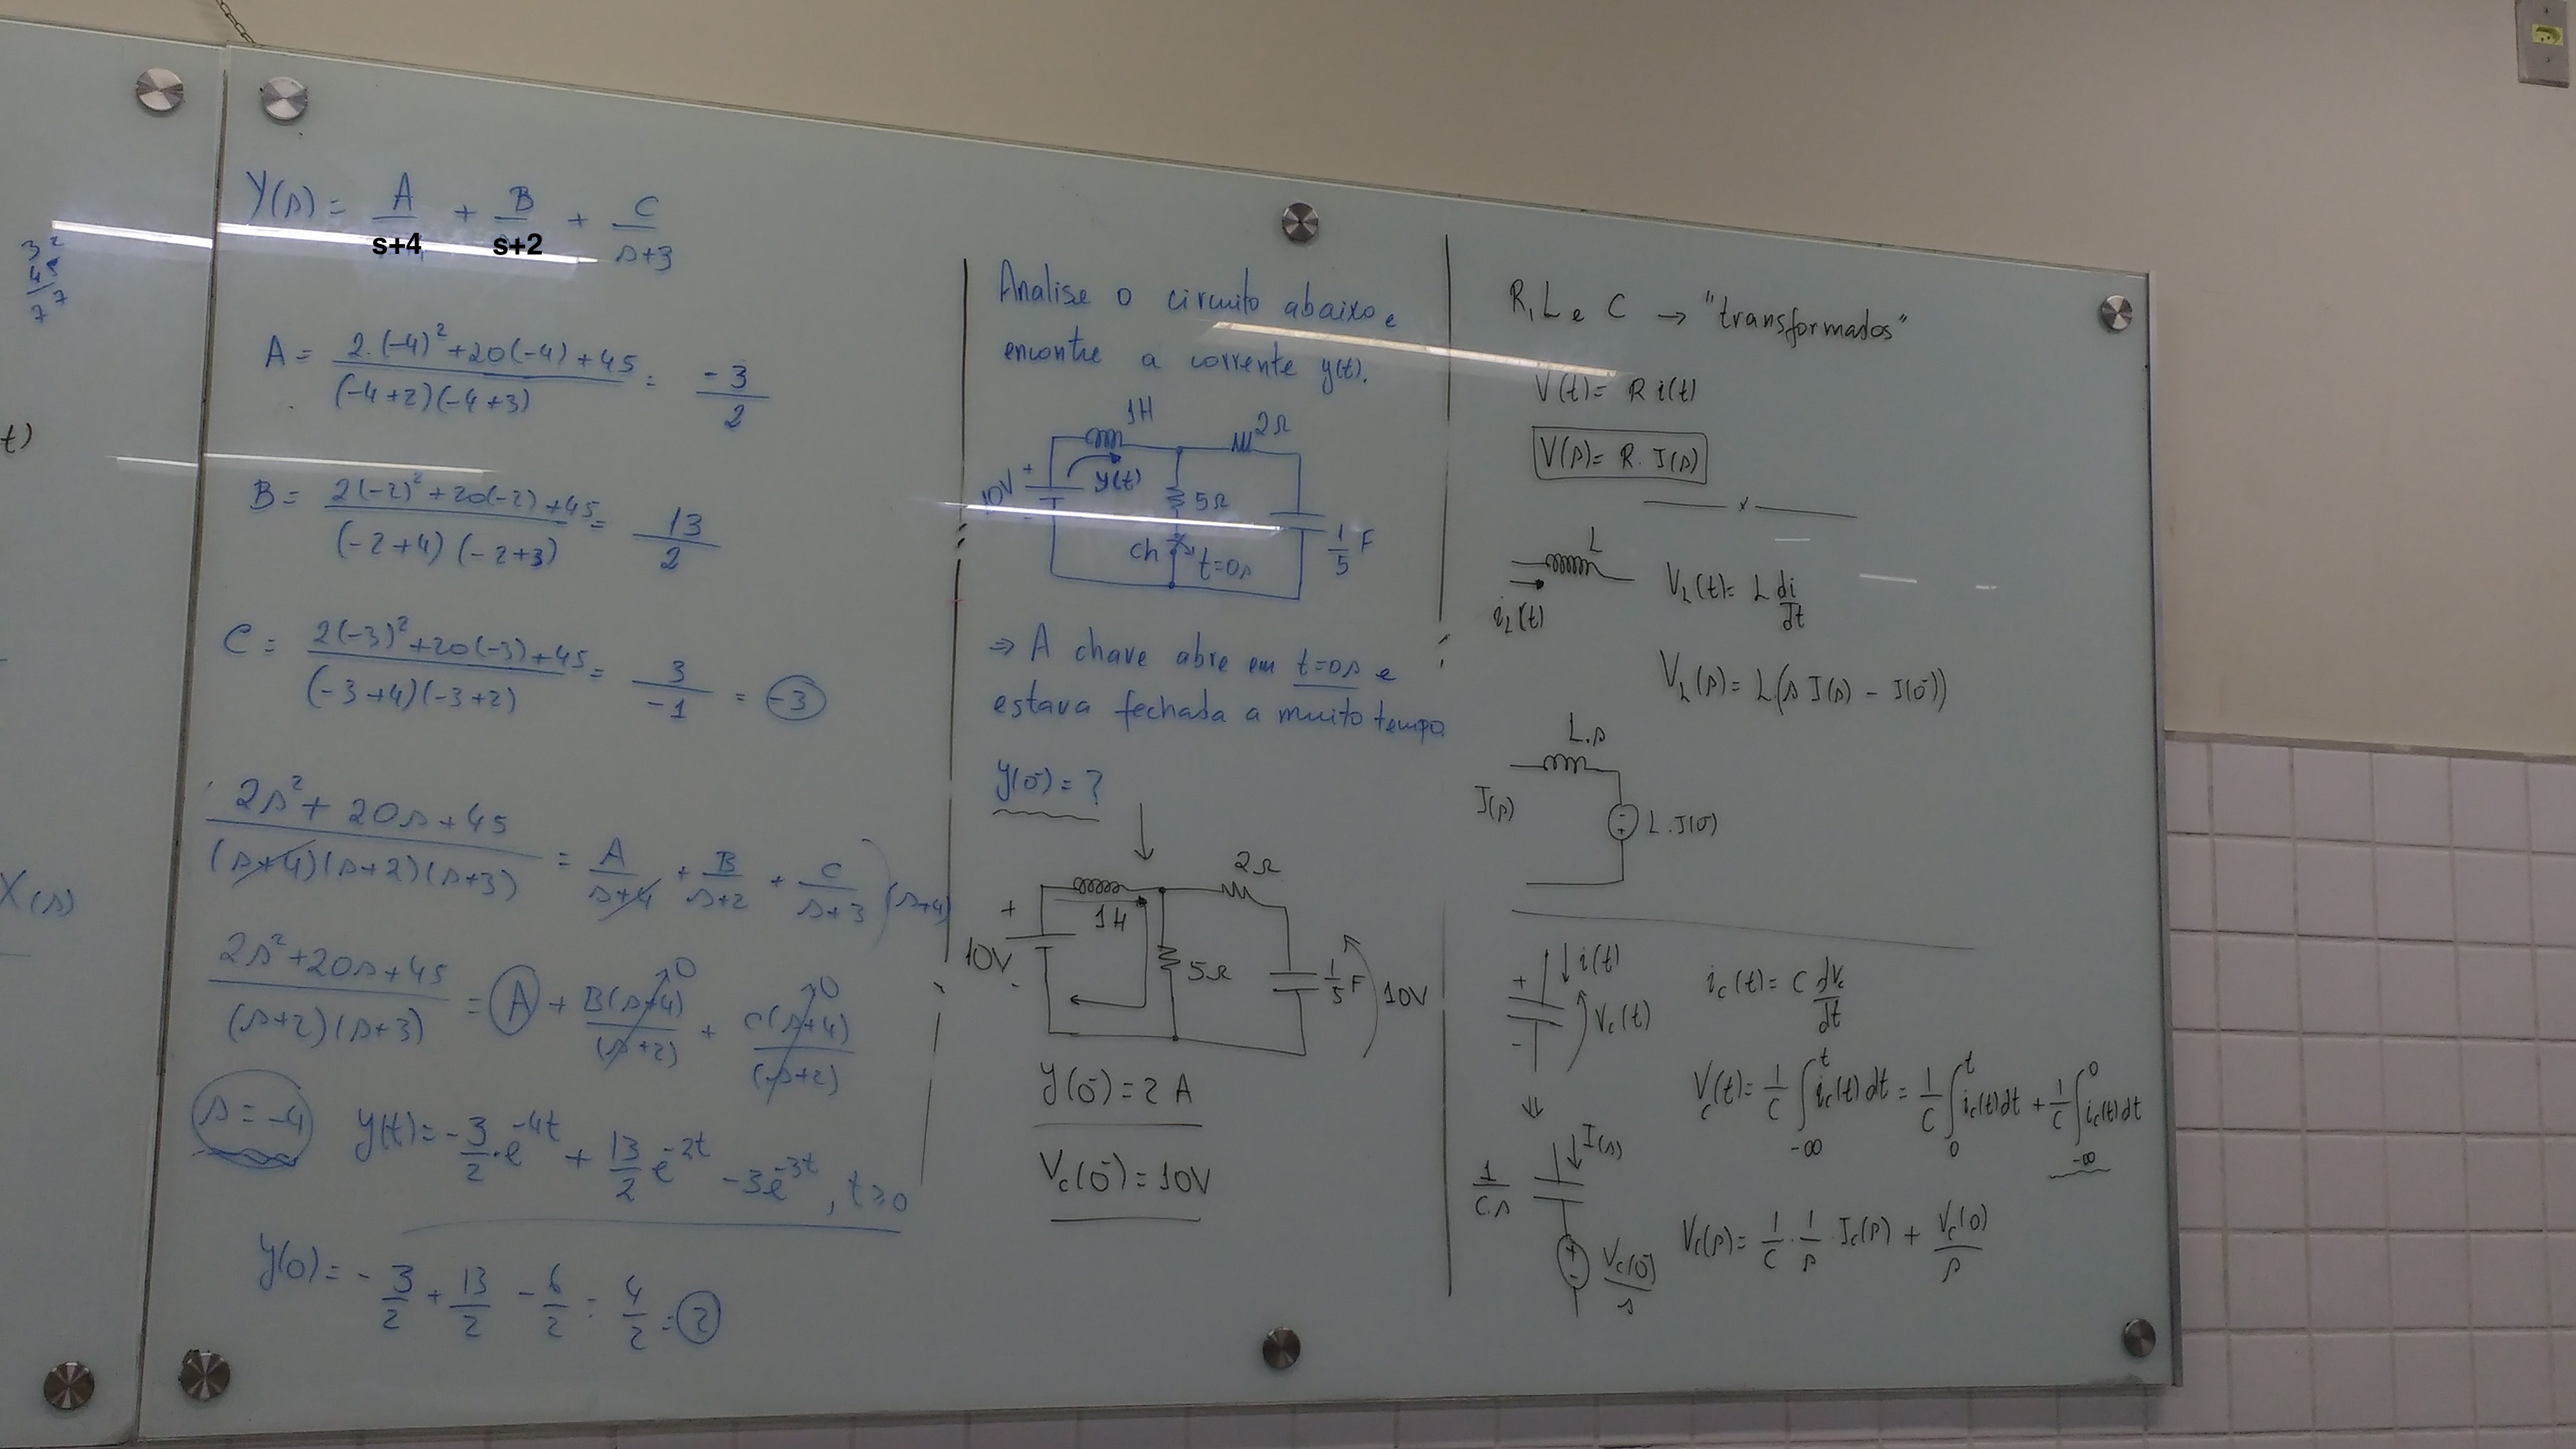 3²
4⁵
7⁷
t)
X(s)
Y(s) = A/s+4 + B/s+2 + C/s+3
A = 2.(-4)²+20(-4)+45/(-4+2)(-4+3) = -3/2
B = 2(-2)²+20(-2)+45/(-2+4)(-2+3) = 13/2
C = 2(-3)²+20(-3)+45/(-3+4)(-3+2) = 3/-1 = -3
2s²+20s+45/(s+4)(s+2)(s+3) = A/s+4 + B/s+2 + C/s+3 )(s+4)
2s²+20s+45/(s+2)(s+3) = A + B(s+4)/(s+2) →0 + C(s+4)/(s+2) →0
s=-4
y(t) = -3/2.e^-4t + 13/2 e^-2t -3e^-3t, t≥0
y(0) = -3/2 + 13/2 - 6/2 = 4/2 = 2
Analise o circuito abaixo e
encontre a corrente y(t).
1H
2Ω
10V
+
y(t)
5Ω
ch t=0s
1/5 F
⇒ A chave abre em t=0s e
estava fechada a muito tempo.
y(0⁻) = ?
2Ω
+
1H
10V
-
5Ω
1/5 F
10V
y(0⁻) = 2 A
Vc(0⁻) = 10V
R, L e C → "transformados"
V(t) = R i(t)
V(s) = R. I(s)
x
L
i_L(t)
V_L(t) = L di/dt
V_L(s) = L(s I(s) - I(0⁻))
L.s
I(s)
- +
L.I(0⁻)
+
-
i(t)
Vc(t)
ic(t) = C dvc/dt
Vc(t) = 1/C ∫_-∞^t ic(t)dt = 1/C ∫_0^t ic(t)dt + 1/C ∫_-∞^0 ic(t)dt
⇓
I(s)
1/C.s
+
-
Vc(0⁻)/s
Vc(s) = 1/C . 1/s . Ic(s) + Vc(0)/s